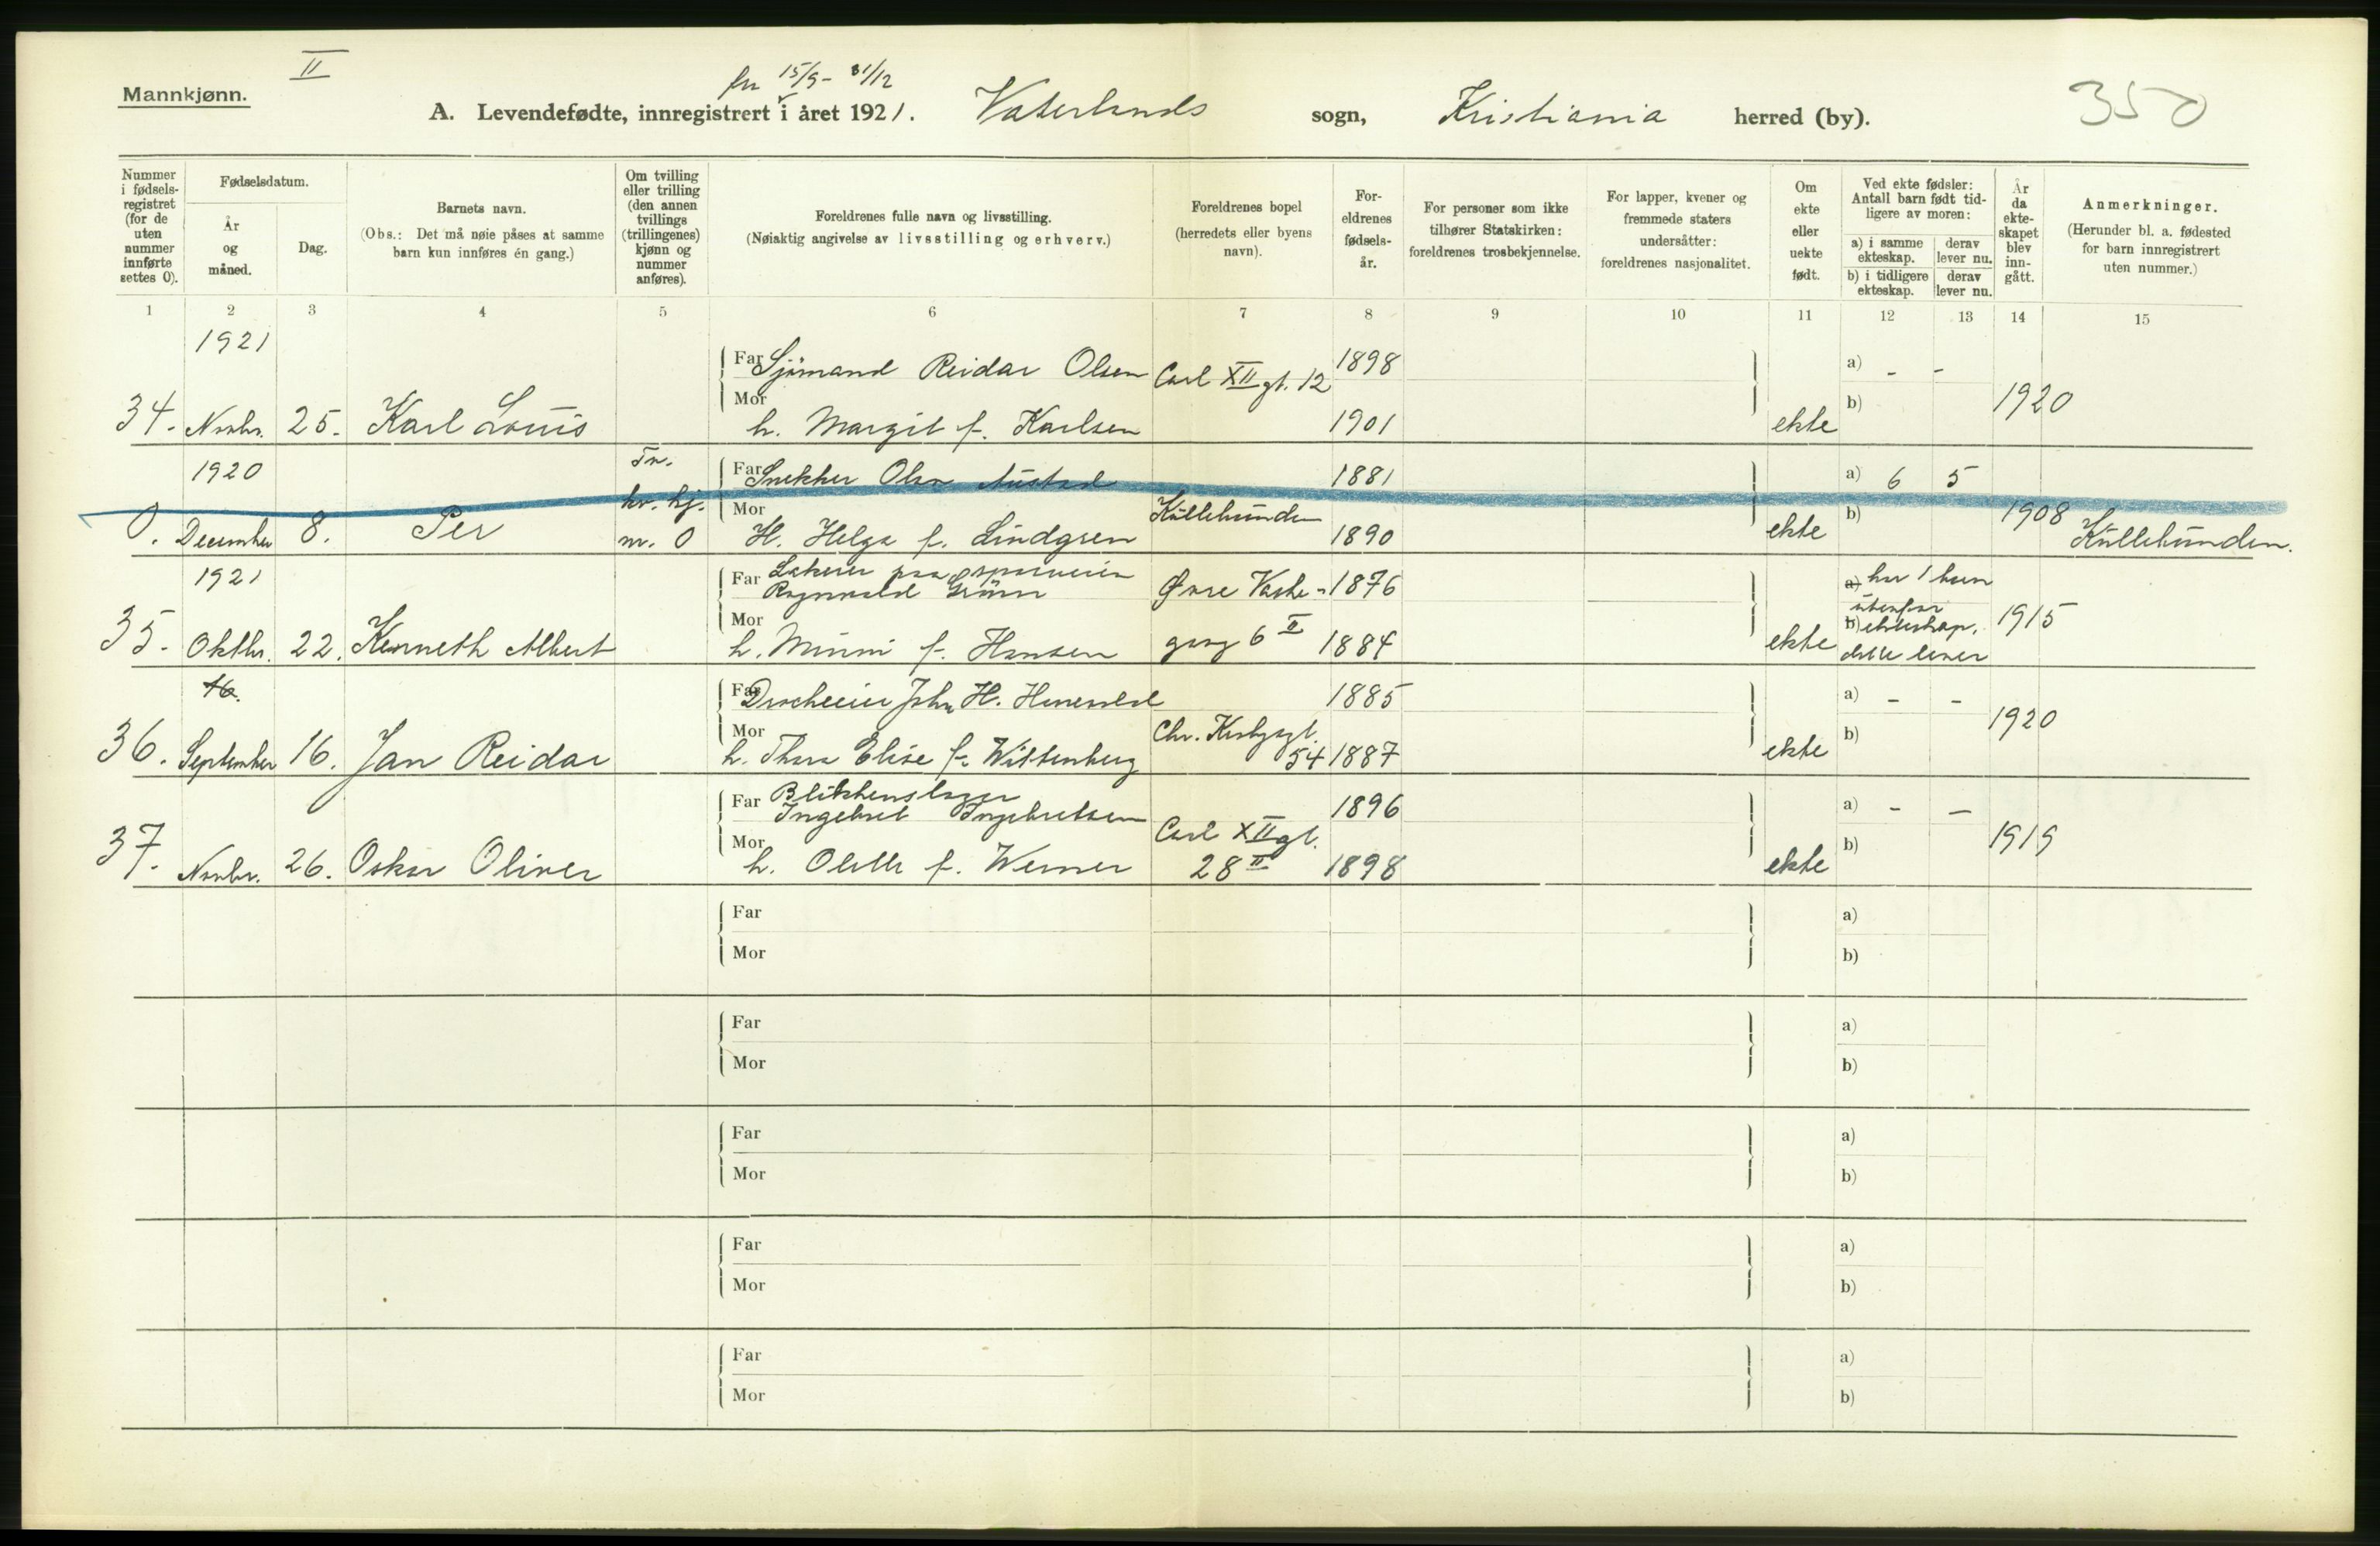 II
Mannkjønn.
fra 15/9 - 31/12
A. Levendefødte, innregistrert i året 1921. Vaterlands sogn, Kristiania herred (by). 350
Nummer i fødsels-registret (for de uten nummer innførte settes 0).
Fødselsdatum.
År og måned.
Dag.
Barnets navn.
(Obs.: Det må nøie påses at samme barn kun innføres én gang.)
Om tvilling eller trilling (den annen tvillings (trillingenes) kjønn og nummer anføres).
Foreldrenes fulle navn og livsstilling.
(Nøiaktig angivelse av livsstilling og erhverv.)
Foreldrenes bopel (herredets eller byens navn).
For-eldrenes fødsels-år.
For personer som ikke tilhører Statskirken: foreldrenes trosbekjennelse.
For lapper, kvener og fremmede staters undersåtter: foreldrenes nasjonalitet.
Om ekte eller uekte født.
Ved ekte fødsler: Antall barn født tid-ligere av moren:
a) i samme ekteskap.
derav lever nu.
b) i tidligere ekteskap.
derav lever nu.
År da ekte-skapet blev inn-gått.
Anmerkninger.
(Herunder bl. a. fødested for barn innregistrert uten nummer.)
1 2 3 4 5 6 7 8 9 10 11 12 13 14 15
1921
Far Sjömand Reidar Olsen Carl XII gt. 12 1898 a) - -
Mor b) 1920
34. Novbr. 25. Karl Louis h. Margit f. Karlsen 1901 ekte
1920 Tv. Far Snekker Olav Austad 1881 a) 6 5
kv. kj. Mor Küllebunden b) 1908
0. December 8. Per nr. 0 H. Helga f. Lindgren 1890 ekte Küllebunden.
1921 Far paa sporveien
Ragnvald Grünn Øvre Vaske- 1876 a) har 1 barn
Mor utenfor b) ekteskap, 1915
35. Oktbr. 22. Kenneth Albert h. Minni f. Hansen gang 6 II 1884 ekte dette lever
Far John H. 1885 a) - -
Mor Chr. Krohgsgt. b) 1920
36. September 16. Jan Reidar h. Thora Elise f. Wittenberg 54 1887 ekte
Far Blikkenslager
Ingebret Ingebretsen 1896 a) - -
Mor Carl XII gt. b) 1919
37. Novbr. 26. Oskar Oliver h. f. Werner 28 II 1898 ekte
Far a)
Mor b)
Far a)
Mor b)
Far a)
Mor b)
Far a)
Mor b)
Far a)
Mor b)